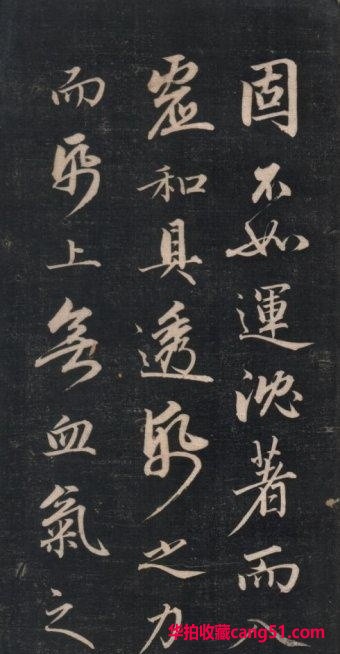 固不如運沈著而入
虛和具透紙之力
而紙上無血氣之
华拍收藏cang51.com